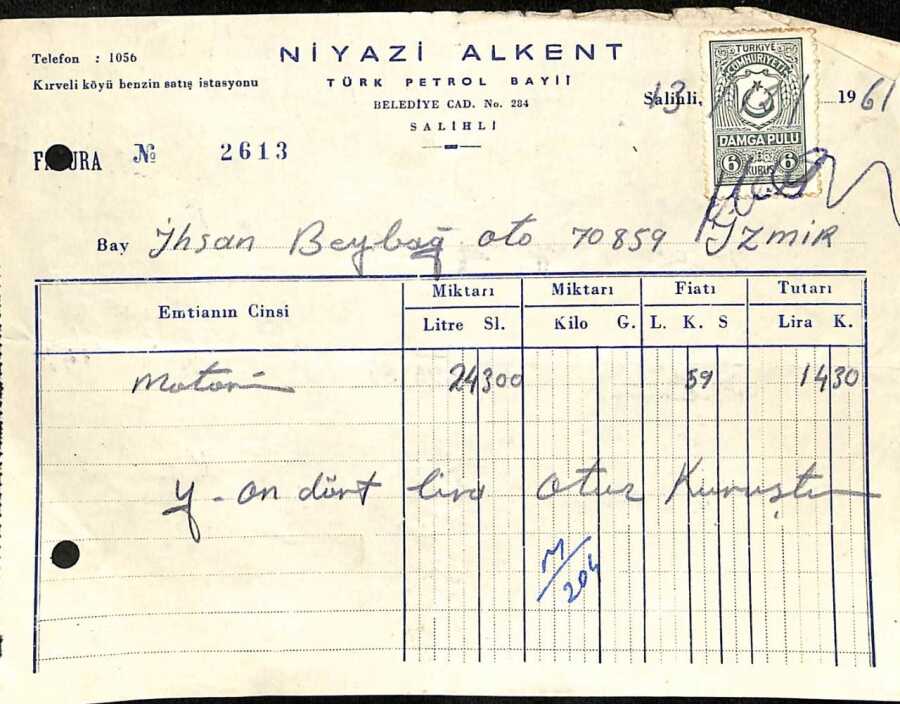 Telefon : 1056
Kırveli köyü benzin satış istasyonu
NİYAZİ ALKENT
TÜRK PETROL BAYİİ
BELEDİYE CAD. No. 284
SALİHLİ
Salihli, 13 1961
TÜRKİYE
CUMHURİYETİ
DAMGA PULU
6 KURUŞ 6
FATURA № 2613
Bay İhsan Beybağ oto 70859 İzmir
Emtianın Cinsi Miktarı Miktarı Fiatı Tutarı
Litre Sl. Kilo G. L. K. S Lira K.
Motorin 24300 59 1430
Y - on dört lira otuz Kuruştur